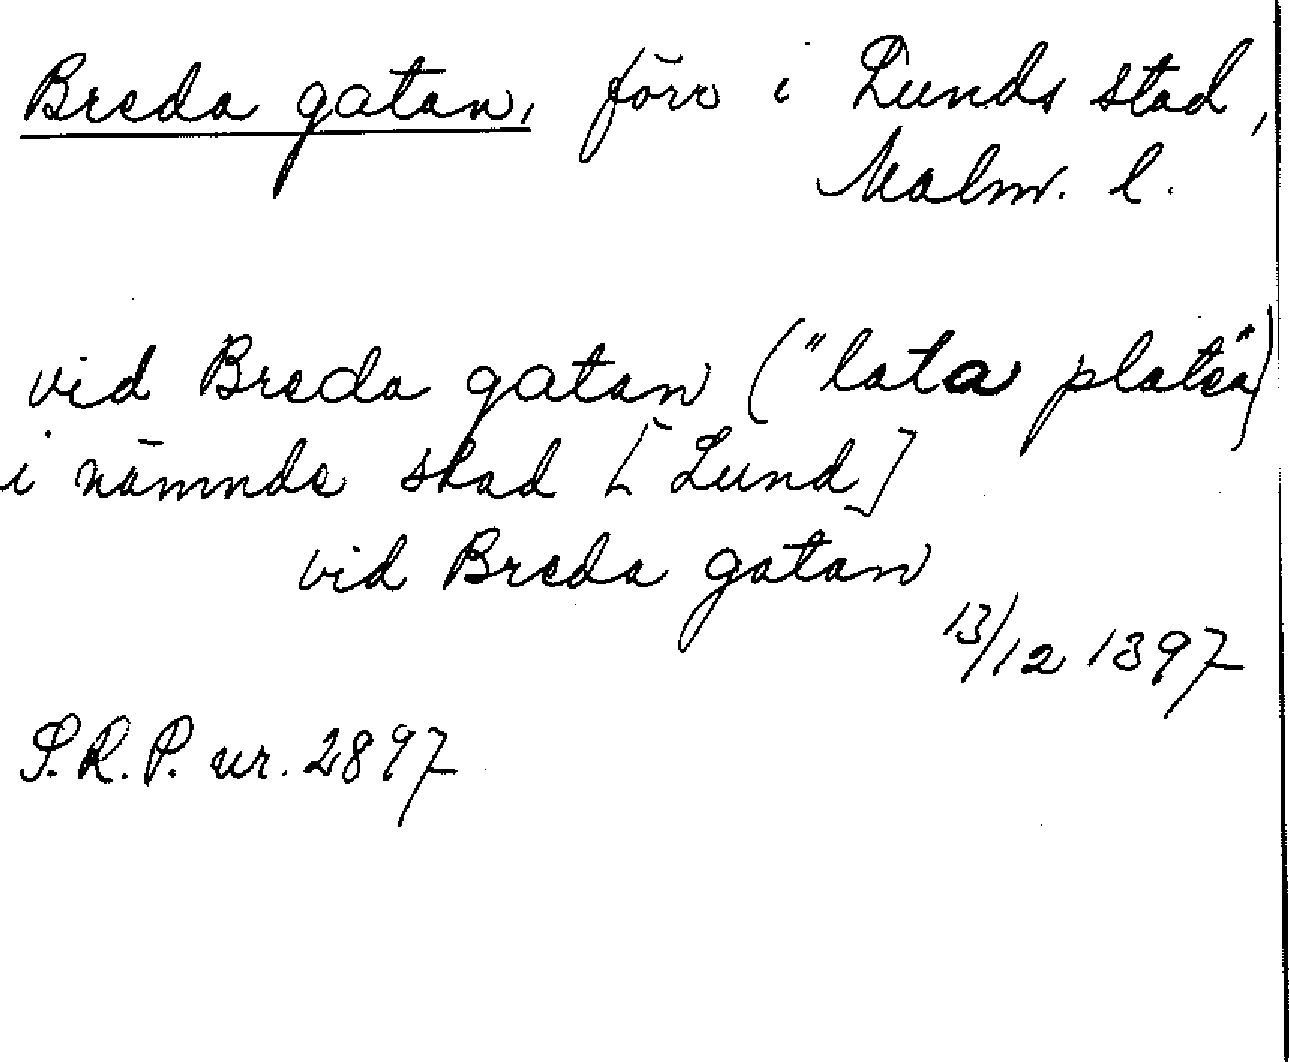 Breda gatan, förr i Lunds stad,
Malm. l.
vid Breda gatan ("lata platea")
i nämnda stad [Lund]
vid Breda gatan
13/12 1397
S.R.P. nr. 2897